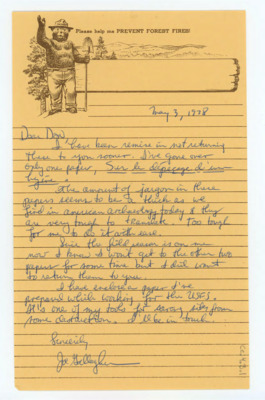 Please help me PREVENT FOREST FIRES!
May 3, 1978
Dear Don,
I have been remiss in not returning
these to you sooner. I've gone over
only one paper, Sur le dépeçage d'un
The amount of jargon in these
papers seems to be as thick as we
find in american archaeology today & they
are very tough to translate. Too tough
for me to do it with ease.
Since the field season is on me
now I know I won't get to the other two
papers for some time but I did want
to return them to you.
I have enclosed a paper I've
prepared while working for the USFS.
It's one of my tools for saving sites from
some destruction. I'll be in touch.
Sincerely
Joe Gallagher